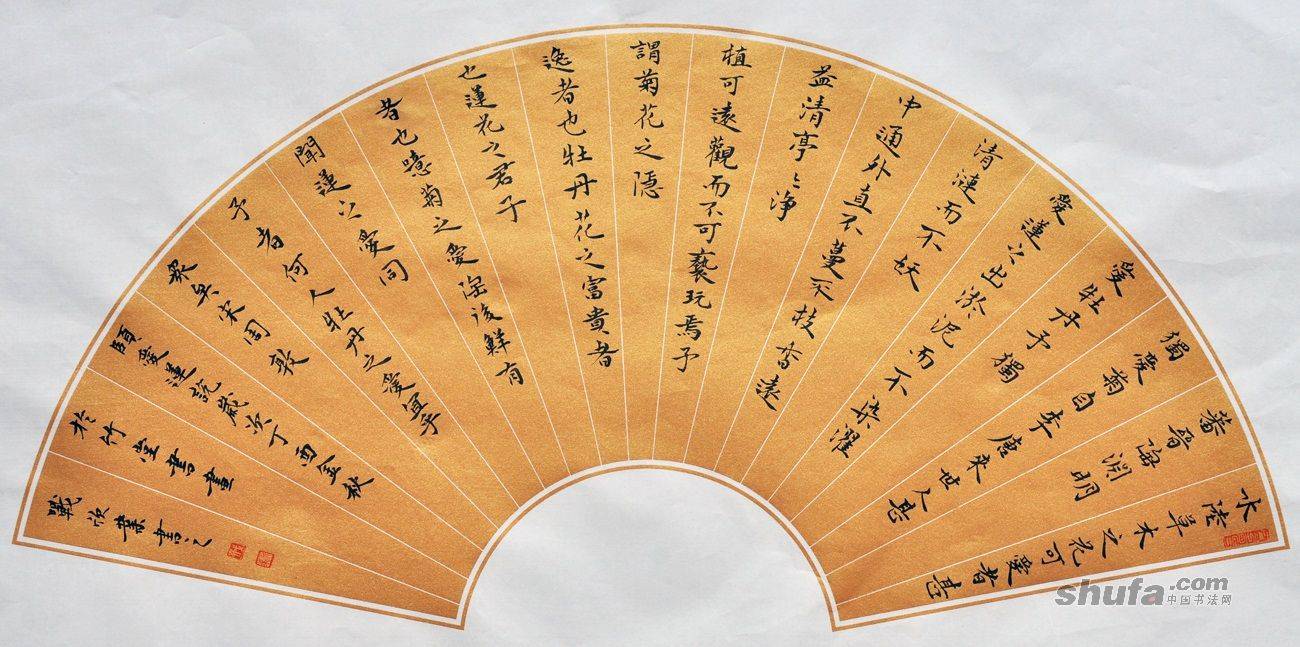 水陸草木之花可愛者甚
蕃晉陶淵明
獨愛菊自李唐來世人甚
愛牡丹予獨
愛蓮之出淤泥而不染濯
清漣而不妖
中通外直不蔓不枝香遠
益清亭々淨
植可遠觀而不可褻玩焉予
謂菊花之隱
逸者也牡丹花之富貴者
也蓮花之君子
者也噫菊之愛陶後鮮有
聞蓮之愛同
予者何人牡丹之愛宜乎
衆矣宋周敦
頤愛蓮說歲次丁酉金秋
於竹堂書畫
戰欣業書之
shufa.com
中国书法网